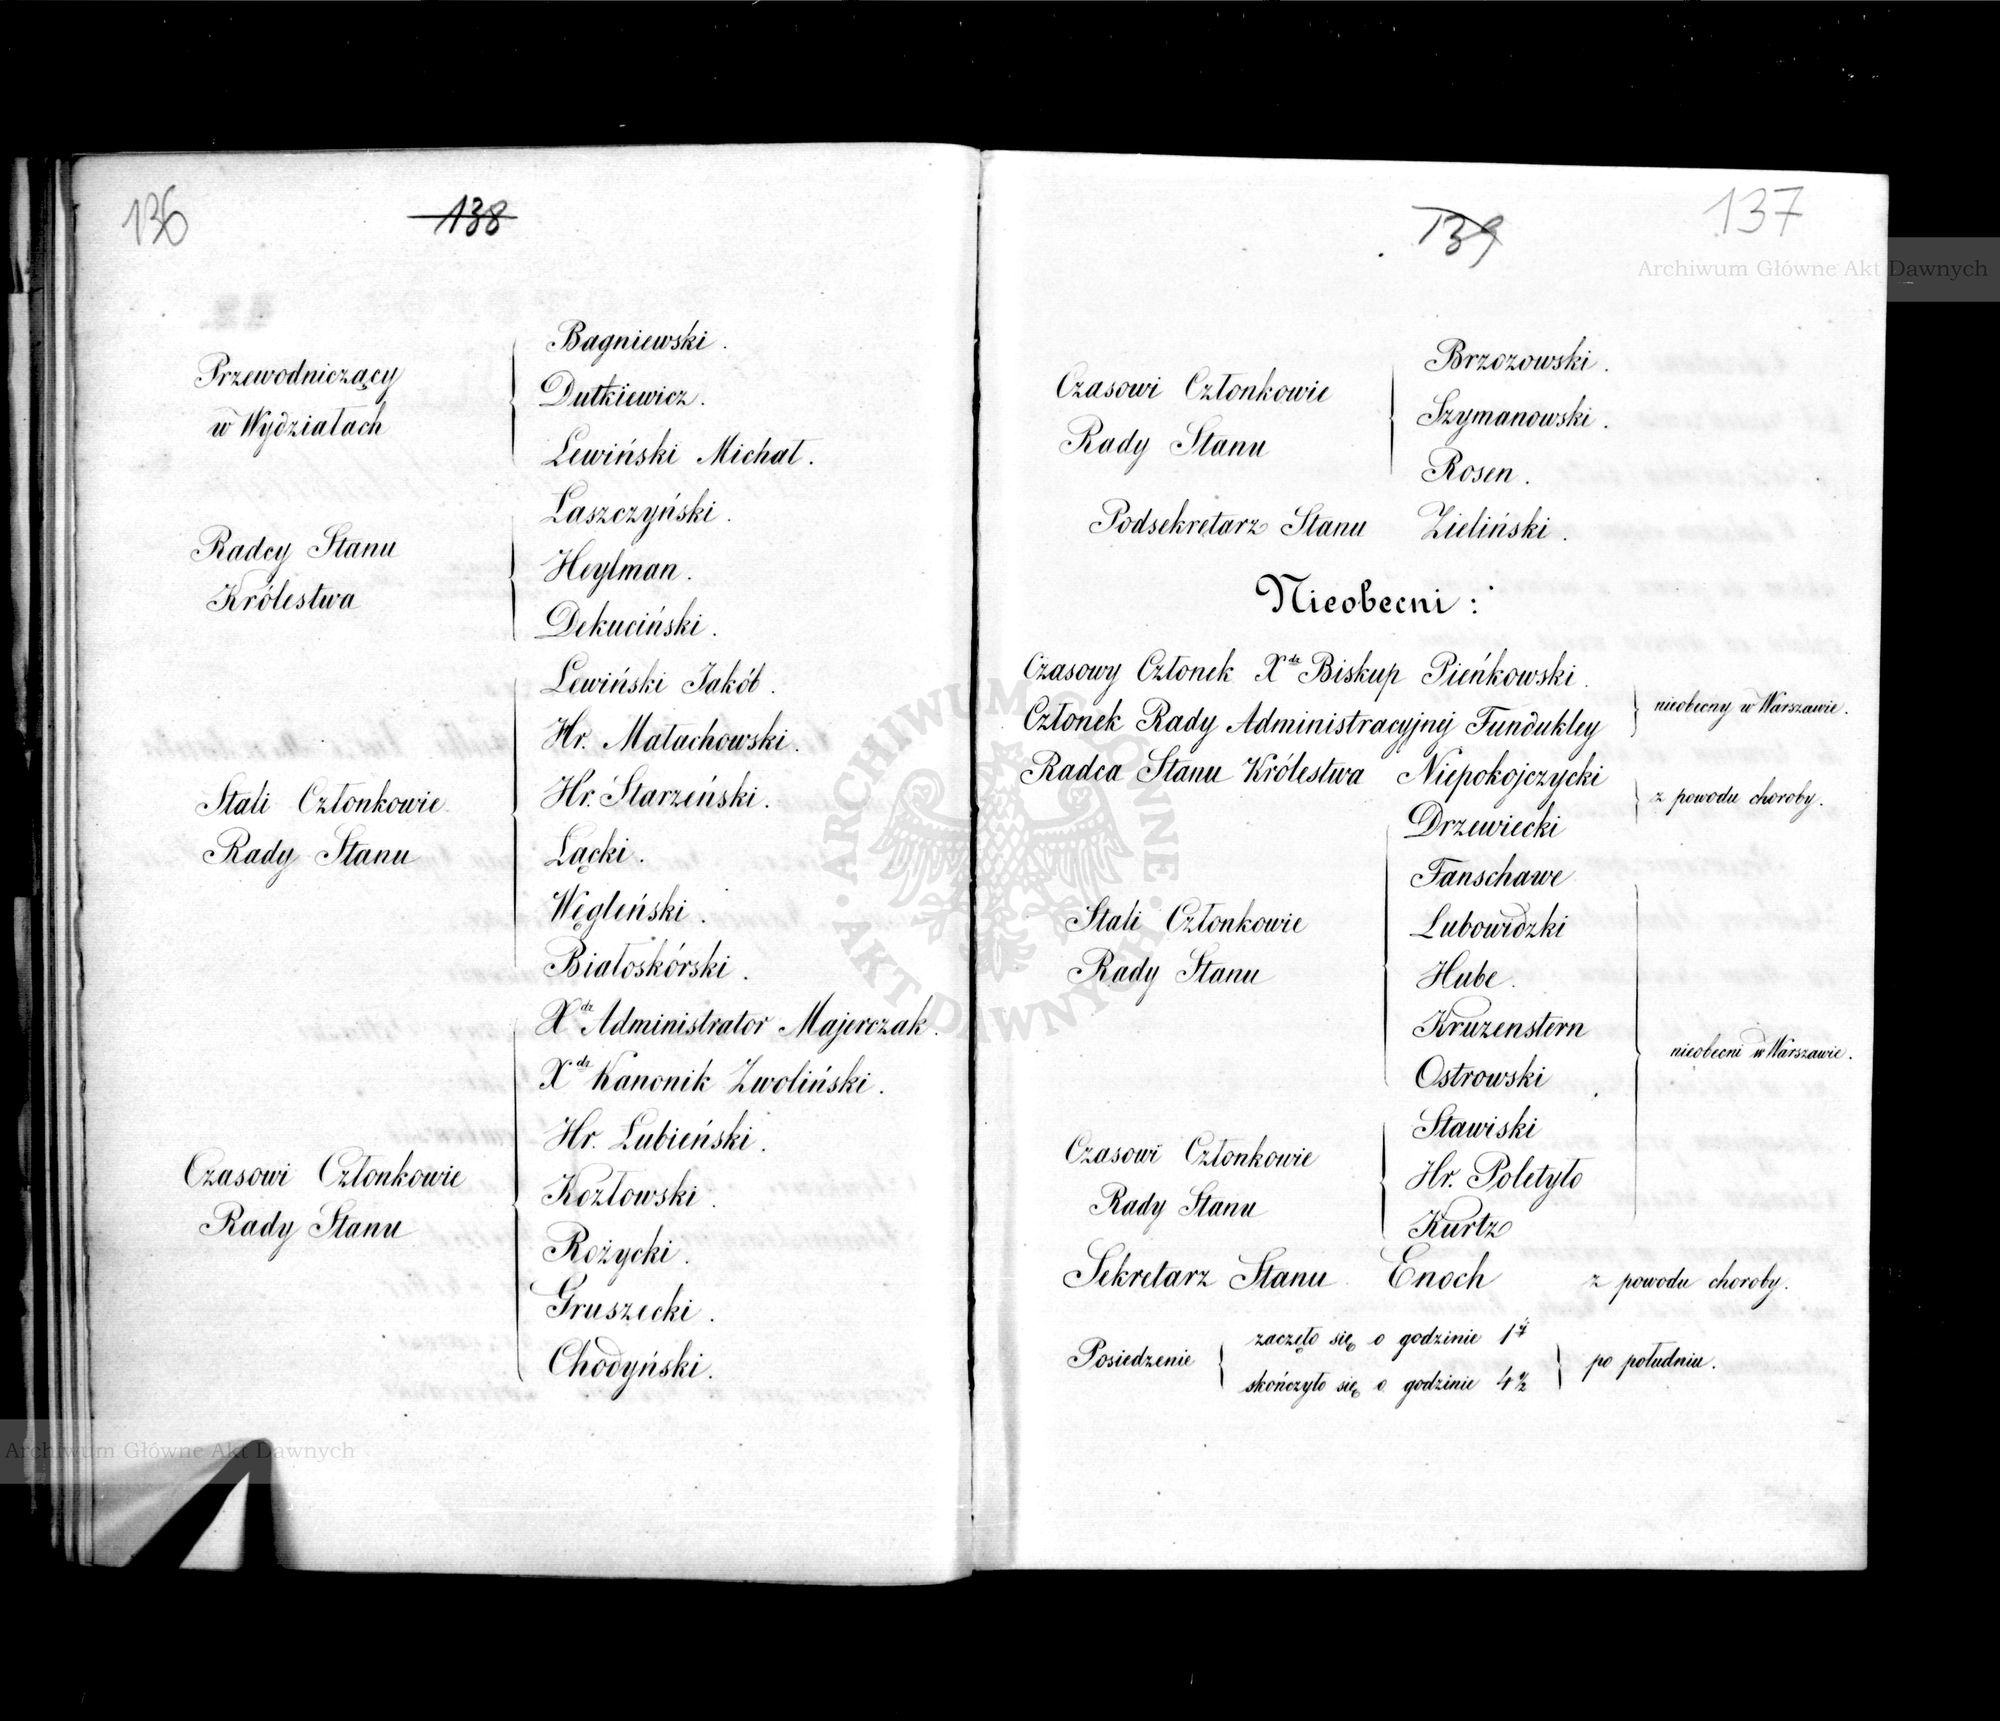 136
138
Przewodniczący
w Wydziałach
Bagniewski.
Dutkiewicz.
Lewiński Michał.
Radcy Stanu
Królestwa
Łaszczyński.
Heylman.
Dekuciński.
Stali Członkowie
Rady Stanu
Lewiński Jakób.
Hr. Małachowski.
Hr. Starzeński.
Łącki.
Węgleński.
Białoskórski.
Czasowi Członkowie
Rady Stanu
Xdz Administrator Majerczak.
Xdz Kanonik Zwoliński.
Hr. Łubieński.
Kozłowski.
Rożycki.
Gruszecki.
Chodyński.
Archiwum Główne Akt Dawnych
139
137
Archiwum Główne Akt Dawnych
Czasowi Członkowie
Rady Stanu
Brzozowski.
Szymanowski.
Rosen.
Podsekretarz Stanu Zieliński.
Nieobecni:
Czasowy Członek Xdz Biskup Pieńkowski.
Członek Rady Administracyjnej Fundukley
nieobecny w Warszawie.
Radca Stanu Królestwa Niepokojczycki
z powodu choroby.
Stali Członkowie
Rady Stanu
Drzewiecki
Fanschawe
Lubowidzki
Hube.
Kruzenstern
Ostrowski
nieobecni w Warszawie.
Czasowi Członkowie
Rady Stanu
Stawiski
Hr. Poletyło
Kurtz
Sekretarz Stanu Enoch z powodu choroby.
Posiedzenie
zaczęło się o godzinie 1éj
skończyło się o godzinie 4½
po południu.
ARCHIWUM GŁÓWNE AKT DAWNYCH